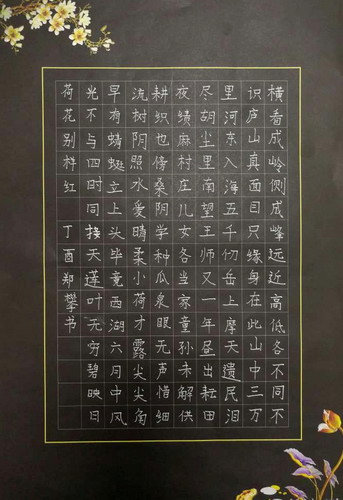 横看成岭侧成峰远近高低各不同不
识庐山真面目只缘身在此山中三万
里河东入海五千仞岳上摩天遗民泪
尽胡尘里南望王师又一年昼出耘田
夜绩麻村庄儿女各当家童孙未解供
耕织也傍桑阴学种瓜泉眼无声惜细
流树阴照水爱晴柔小荷才露尖尖角
早有蜻蜓立上头毕竟西湖六月中风
光不与四时同接天莲叶无穷碧映日
荷花别样红 丁酉郑攀书